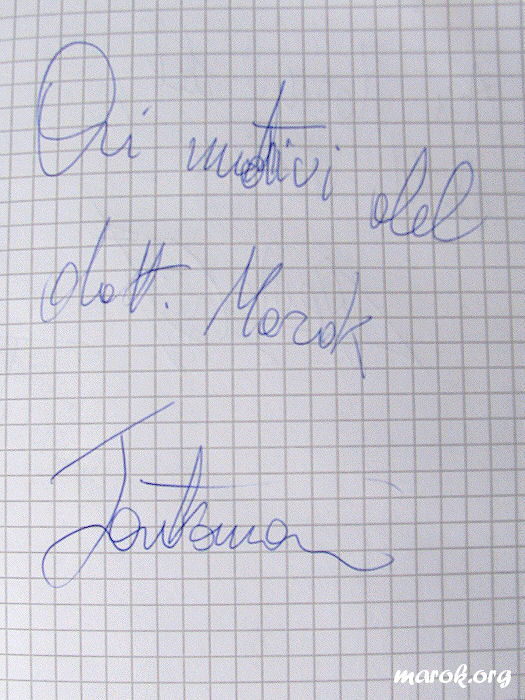 Ai motivi del
dott. Marok
marok.org